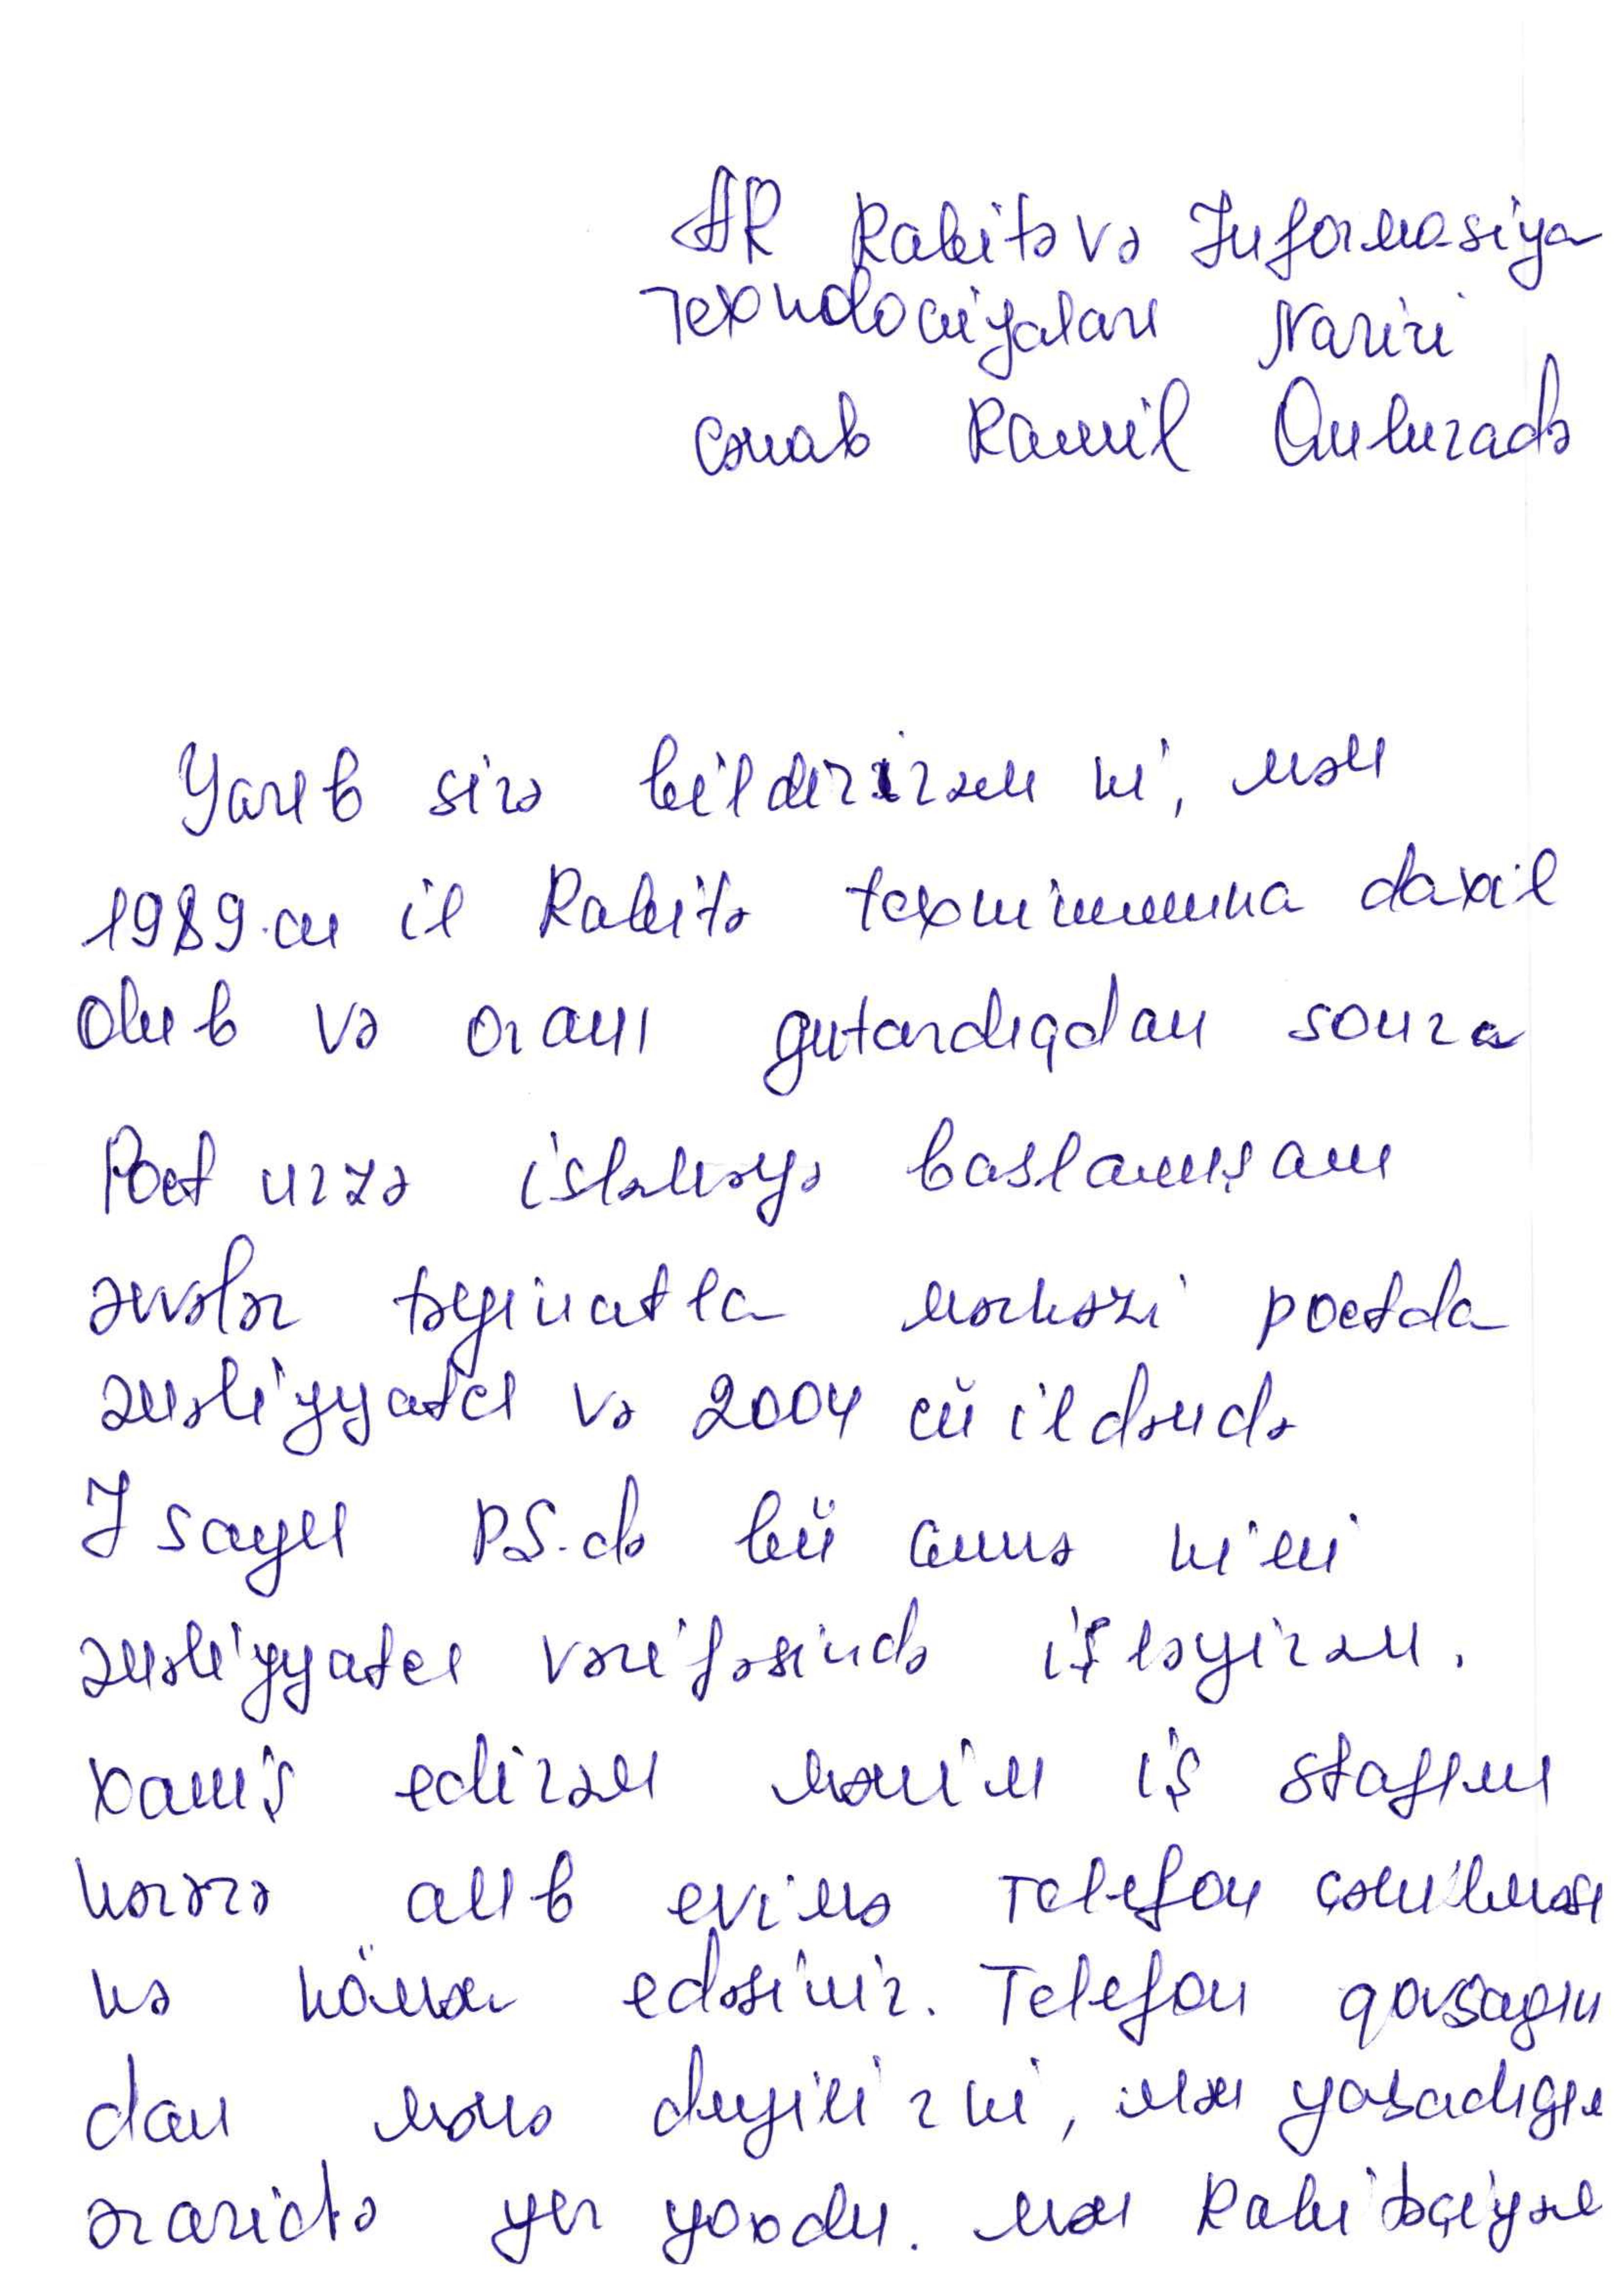 AR Rabitə və İnformasiya
Texnologiyaları Naziri
cənab Ramil Quluzadə
Yazıb sizə bildirirəm ki, mən
1989.cu il Rabitə texnikumuna daxil
olub və oranı qutardıqdan sonra
Poct uzrə isləməyə baslamışam
əvvəlcə təyinatla mərkəzi poctda
əməliyyatcı və 2004 cü ildəndə
I sayılı PS.də bü günə kimi
əməliyyatcı vəzifəsində işləyirəm.
xamiş edirəm mənim iş stajımı
nəzərə alıb evimə Telefon çəkilməsi
nə kömək edəsiniz. Telefon qovşagın
dan mənə deyilir ki, mən yaşadıgım
ərazidə yer yoxdu. mən Rabitəçiyəm